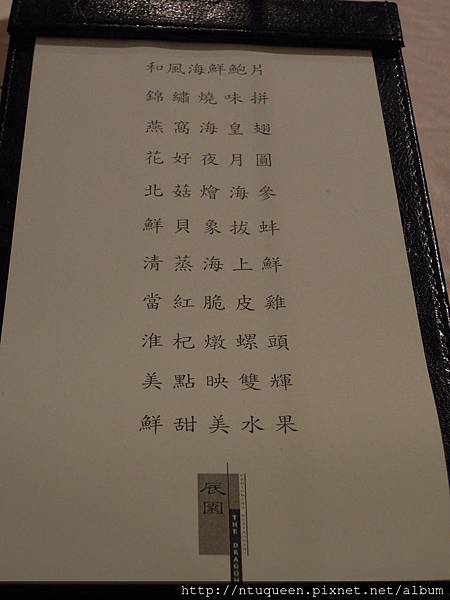 和風海鮮鮑片
錦繡燒味拼
燕窩海皇翅
花好夜月圓
北菇燴海參
鮮貝象拔蚌
清蒸海上鮮
當紅脆皮雞
淮杞燉螺頭
美點映雙輝
鮮甜美水果
辰園
THE DRAGON
http://ntuqueen.pixnet.net/album